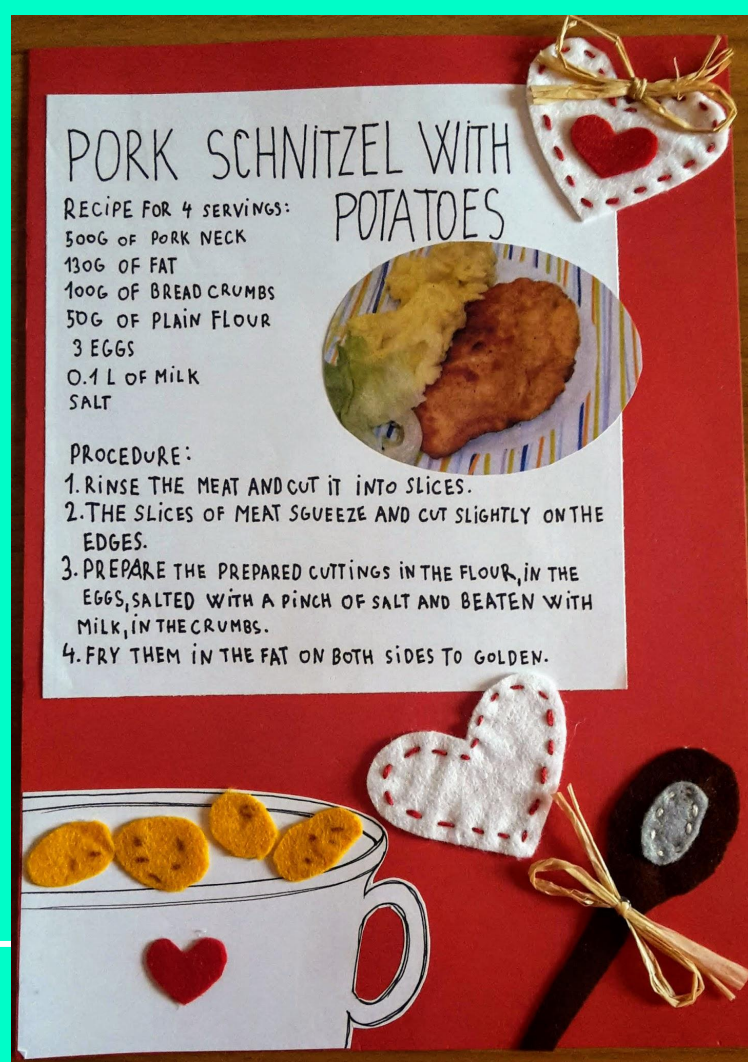 PORK SCHNITZEL WITH
POTATOES
RECIPE FOR 4 SERVINGS:
500G OF PORK NECK
130G OF FAT
100G OF BREAD CRUMBS
50G OF PLAIN FLOUR
3 EGGS
0.1 L OF MILK
SALT
PROCEDURE:
1. RINSE THE MEAT AND CUT IT INTO SLICES.
2. THE SLICES OF MEAT SGUEEZE AND CUT SLIGHTLY ON THE
EDGES.
3. PREPARE THE PREPARED CUTTINGS IN THE FLOUR, IN THE
EGGS, SALTED WITH A PINCH OF SALT AND BEATEN WITH
MILK, IN THE CRUMBS.
4. FRY THEM IN THE FAT ON BOTH SIDES TO GOLDEN.